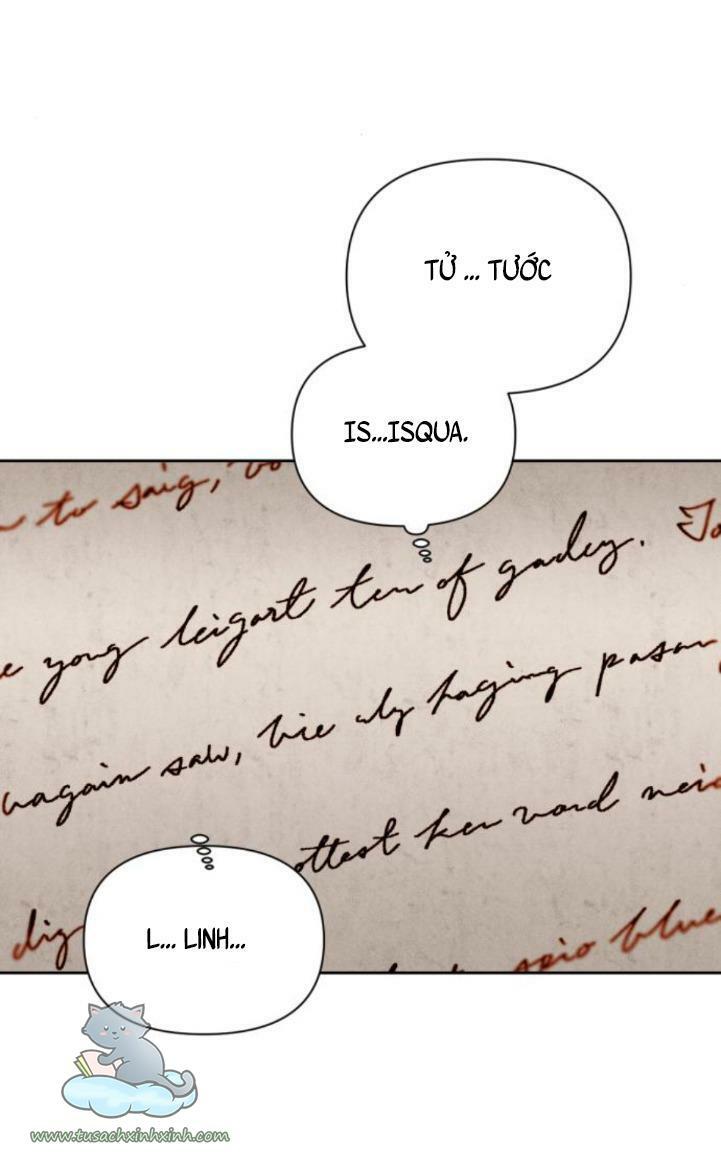 TỬ ... TƯỚC
IS...ISQUA.
to saig,
yong leigart ten of gadey.
uagain saw, hie aly haging pasan
ottest ken vord neig
L... LINH...
dig
spio blue
www.tusachxinhxinh.com